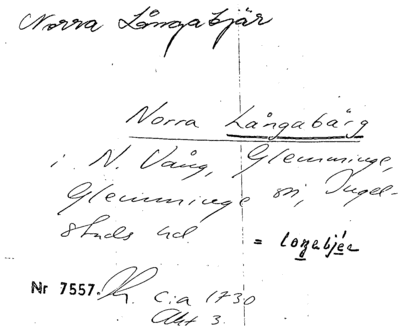 Norra Långabjär
Norra Långabärg
i N. Vång, Glemminge,
Glemminge sn, Ingel-
stads hd.
= longabjér
Nr 7557. K. c:a 1730
Akt 3.